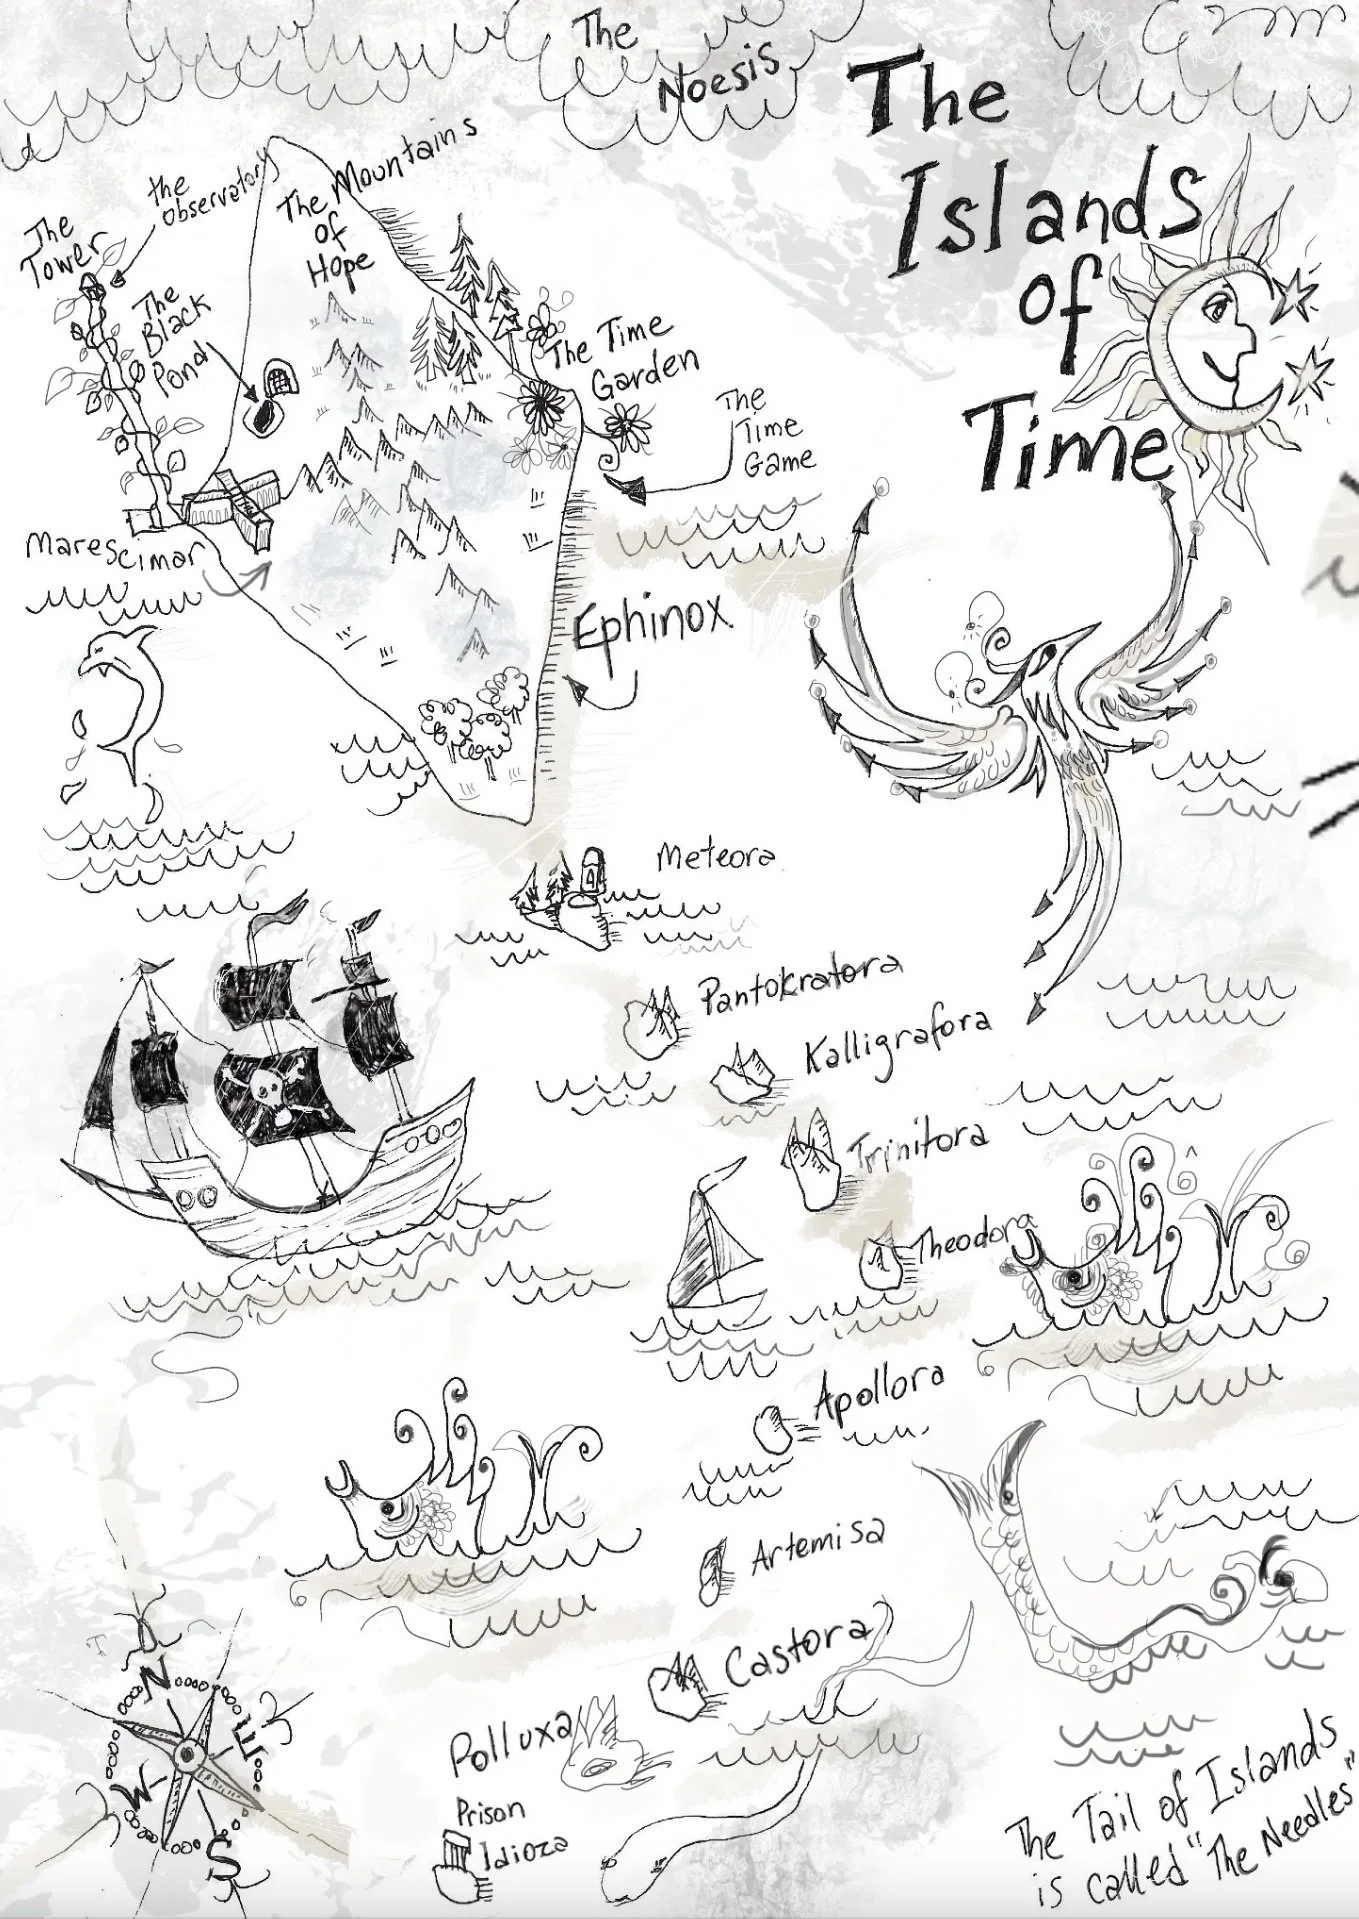 The
Noesis
The
Islands
of
Time
The Mountains
of
Hope
the
observatory
The
Tower
The
Black
Pond
The Time
Garden
The
Time
Game
Marescimar
Ephinox
Meteora
Pantokratora
Kalligrafora
Trinitora
Theodora
Apollora
Artemisa
Castora
Polluxa
Prison
Idioza
N
E
W
S
The Tail of Islands
is called "The Needles"